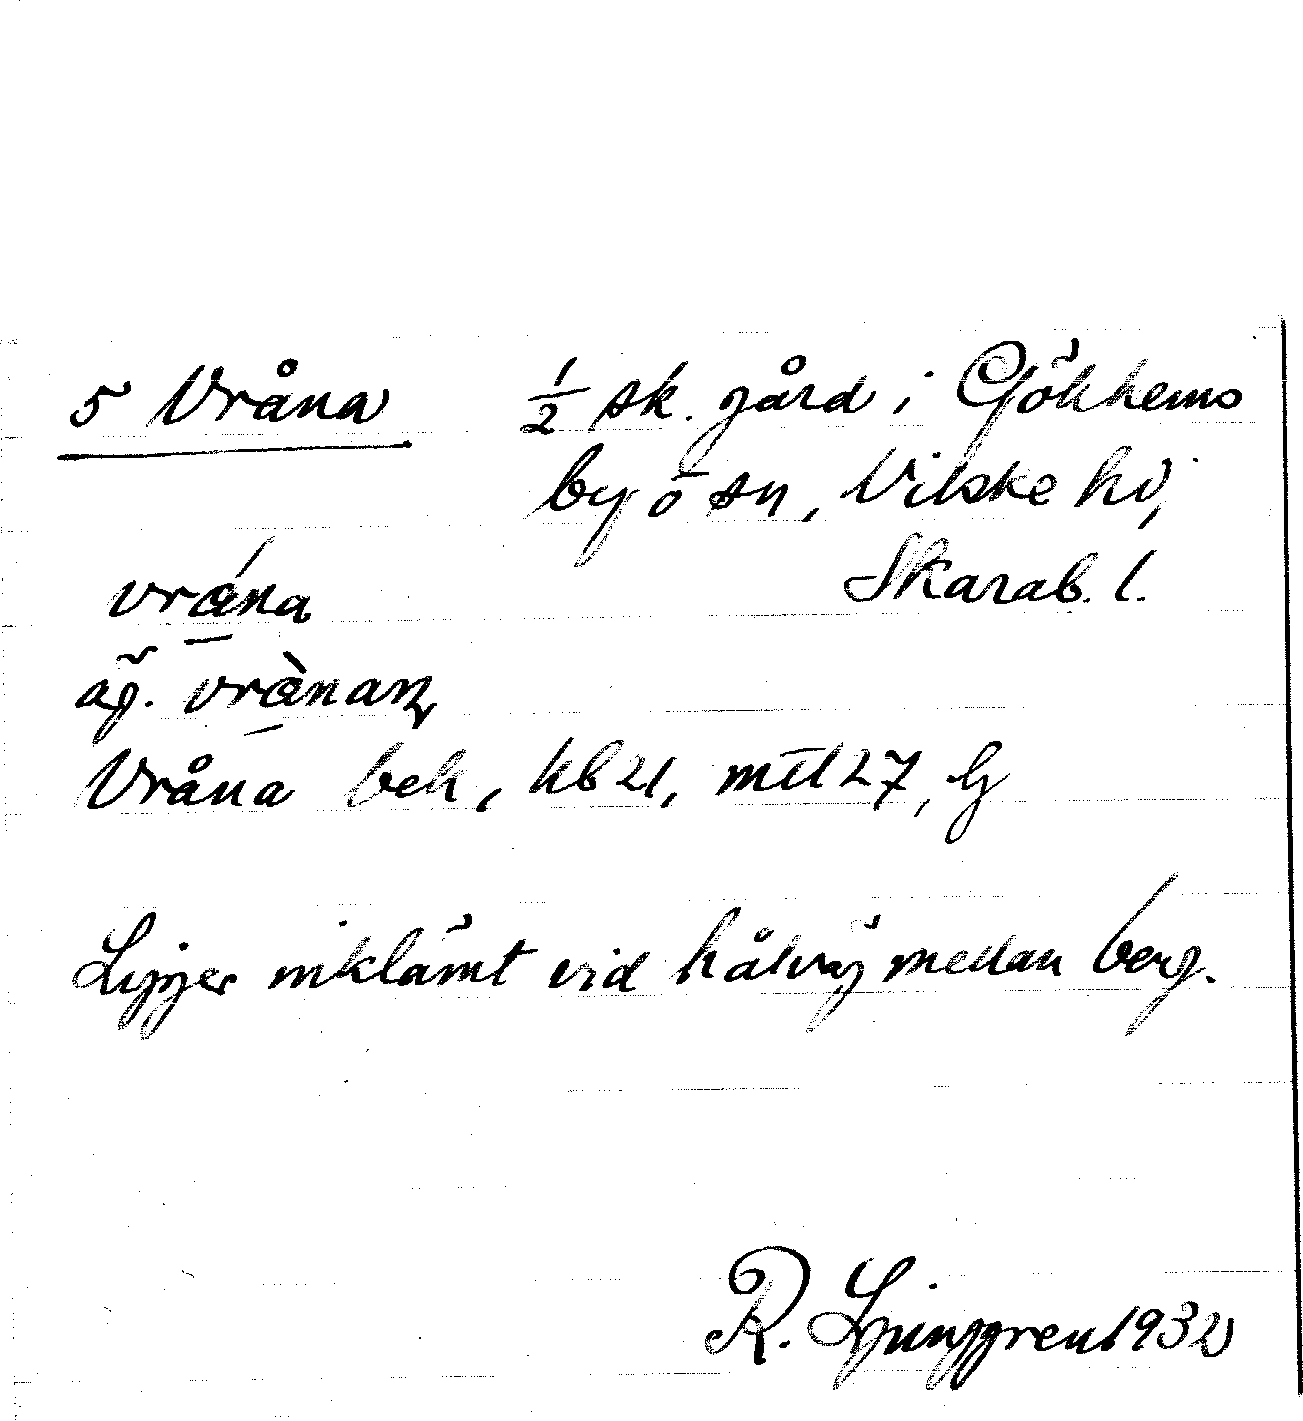 5 Vråna ½ sk. gård i Gökhems
by o sn, Vilske hd,
Skarab. l.
vråna
äg. vrånanz
Vråna bek, kb 21, mtl 27, lj
Ligger inklämt vid hålväg mellan berg.
R. Ljunggren 1932